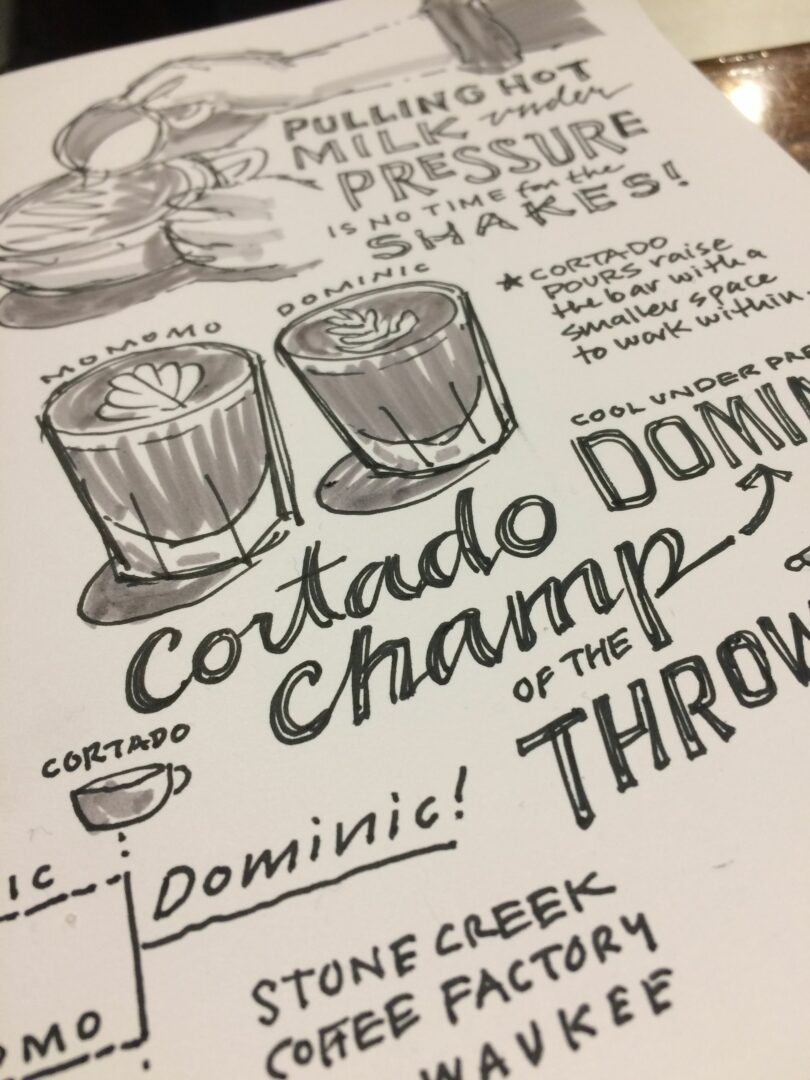 PULLING HOT
MILK under
PRESSURE
IS NO TIME for the
SHAKES!
MOMOMO
DOMINIC
★ CORTADO
POURS raise
the bar with a
smaller space
to work within.
COOL UNDER PRE
DOMIN
Cortado
Champ
OF THE
THROW
CORTADO
IC
Dominic!
OMO
STONE CREEK
COFFEE FACTORY
WAUKEE